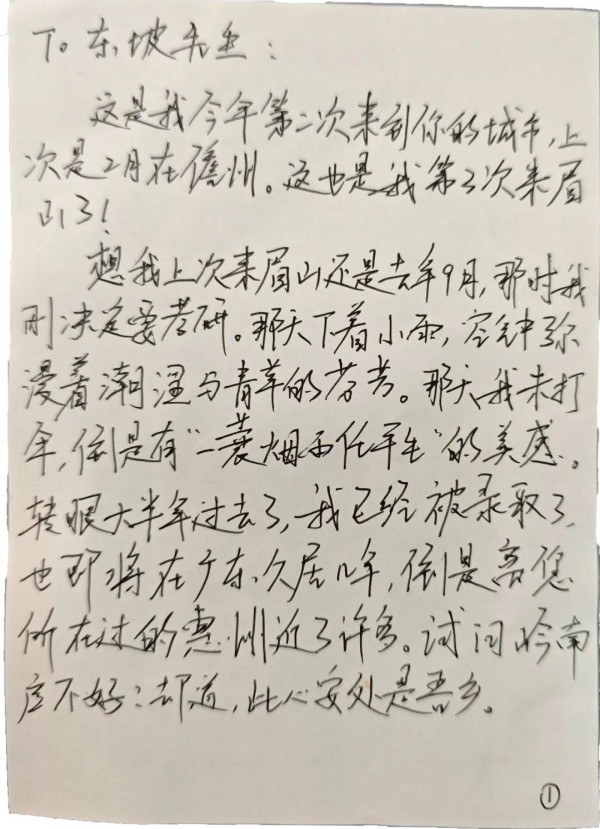 To 东坡先生：
这是我今年第二次来到你的城市，上
次是2月在儋州。这也是我第3次来眉
山了！
想我上次来眉山还是去年9月，那时我
刚决定要考研。那天下着小雨，空气中弥
漫着潮湿与青草的芬芳。那天我未打
伞，倒是有“一蓑烟雨任平生”的美感。
转眼大半年过去了，我已经被录取了，
也即将在广东久居几年，倒是离您
所在过的惠州近了许多。试问岭南
应不好？却道，此心安处是吾乡。
①